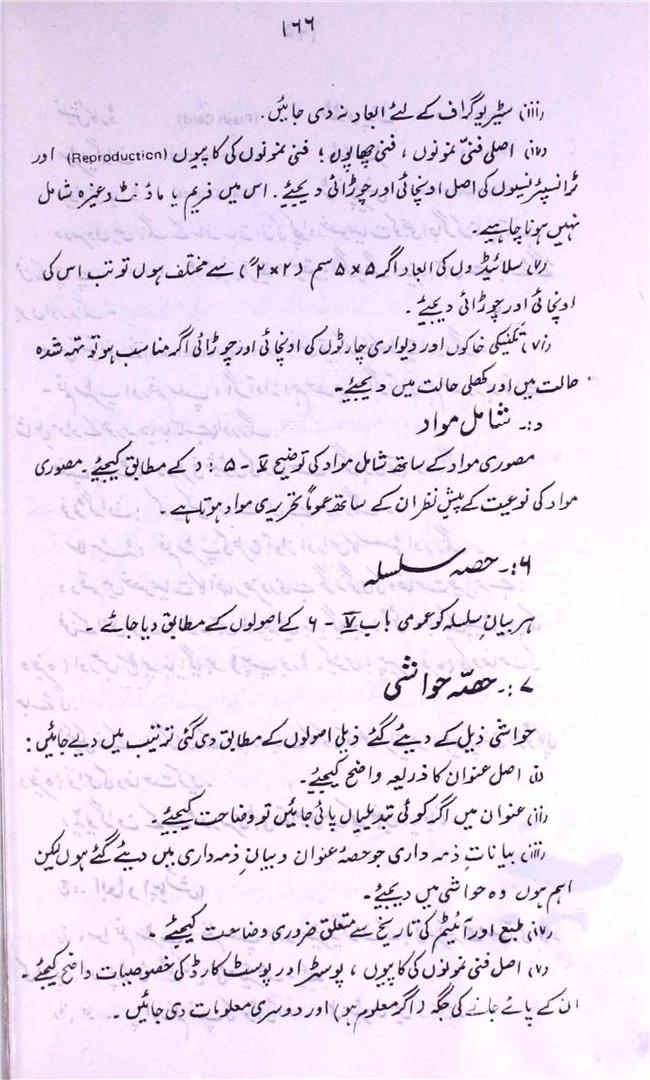 ۱۶۶
(iii) سٹیریوگراف کے لئے ابعاد نہ دی جائیں۔
(iv) اصلی فنی نمونوں ، فنی چھاپوں ؛ فنی نمونوں کی کاپیوں (Reproduction) اور
ٹرانسپیرنسیوں کی اصل اونچائی اور چوڑائی دیجیئے۔ اس میں فریم یا ماؤنٹ وغیرہ شامل
نہیں ہونا چاہیے۔
(v) سلائیڈوں کی ابعاد اگر ۵ × ۵ سم (۲ × ۲ ") سے مختلف ہوں تو تب اس کی
اونچائی اور چوڑائی دیجیئے۔
(vi) تکنیکی خاکوں اور دیواری چارٹوں کی اونچائی اور چوڑائی اگر مناسب ہو تو تہہ شدہ
حالت میں اور کھلی حالت میں دیجیئے۔
د:۔ شامل مواد
مصوری مواد کے ساتھ شامل مواد کی توضیح V - ۵ : د کے مطابق کیجیئے۔ مصوری
مواد کی نوعیت کے پیش نظر ان کے ساتھ عموماً تحریری مواد ہوتا ہے۔
۶:۔ حصہ سلسلہ
ہر بیانِ سلسلہ کو عمومی باب V - ۶ کے اصولوں کے مطابق دیا جائے۔
۷:۔ حصّہ حواشی
حواشی ذیل کے دیئے گئے ذیلی اصولوں کے مطابق دی گئی ترتیب میں دیے جائیں :
(i) اصل عنوان کا ذریعہ واضح کیجیئے۔
(ii) عنوان میں اگر کوئی تبدیلیاں پائی جائیں تو وضاحت کیجیئے۔
(iii) بیاناتِ ذمہ داری جو حصۂ عنوان و بیانِ ذمہ داری میں دیئے گئے ہوں لیکن
اہم ہوں وہ حواشی میں دیجیئے۔
(iv) طبع اور آئیٹم کی تاریخ سے متعلق ضروری وضاحت کیجیئے۔
(v) اصل فنی نمونوں کی کاپیوں ، پوسٹر اور پوسٹ کارڈ کی خصوصیات واضح کیجیئے۔
ان کے پائے جانے کی جگہ (اگر معلوم ہو) اور دوسری معلومات دی جائیں۔